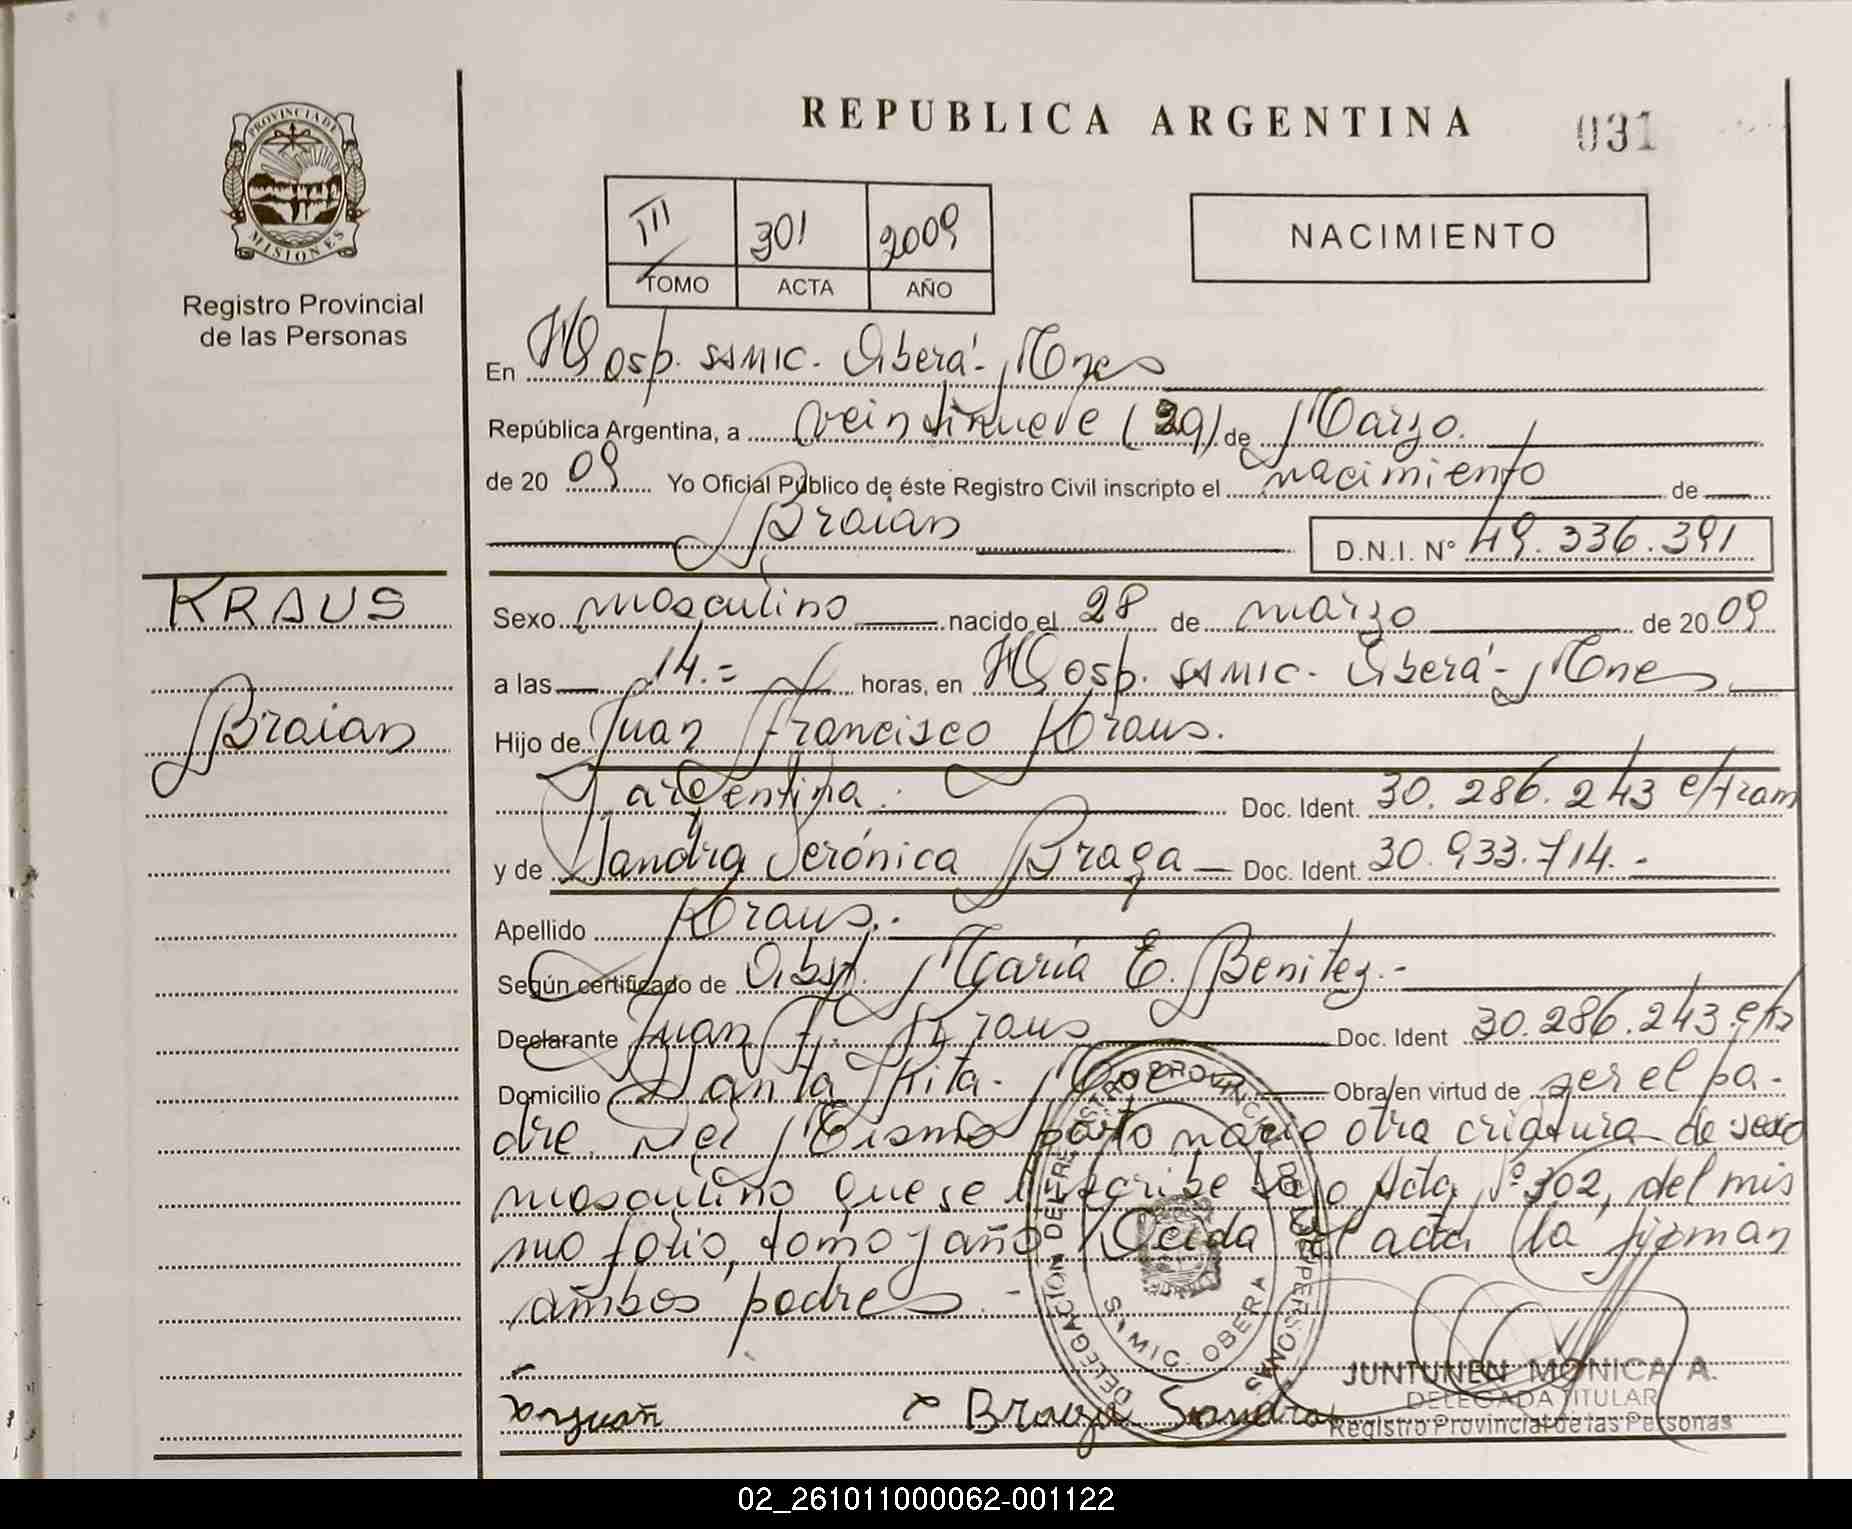 REPUBLICA ARGENTINA
031
PROVINCIA DE
MISIONES
Registro Provincial
de las Personas
III 301 2009
TOMO ACTA AÑO
NACIMIENTO
En Hosp. SAMIC. Oberá - Mnes
República Argentina, a veintinueve (29) de Marzo.
de 20 09 Yo Oficial Público de éste Registro Civil inscripto el nacimiento de
Braian
D.N.I. Nº 49.336.391
KRAUS
Braian
Sexo masculino nacido el 28 de marzo de 20 09
a las 14.= horas, en Hosp. SAMIC - Oberá - Mnes
Hijo de Juan Francisco Kraus.
argentina.- Doc. Ident. 30.286.243 e/tram
y de Sandra Verónica Braga Doc. Ident. 30.933.714.-
Apellido Kraus.-
Según certificado de Obst. María E. Benitez.-
Declarante Juan F. Kraus Doc. Ident 30.286.243 e/t
Domicilio Santa Rita - Obra en virtud de ser el pa-
dre. Del Mismo parto nació otra criatura de sexo
masculino que se inscribe bajo Acta Nº 302, del mis
mo folio, tomo y año. Leida el acta la firman
ambos padres.-
DELEGACION DEL REGISTRO PROVINCIAL DE LAS PERSONAS
S.A.MIC. OBERA
Juan
x Braga Sandra
JUNTUNEN MONICA A.
DELEGADA TITULAR
Registro Provincial de las Personas
02_261011000062-001122